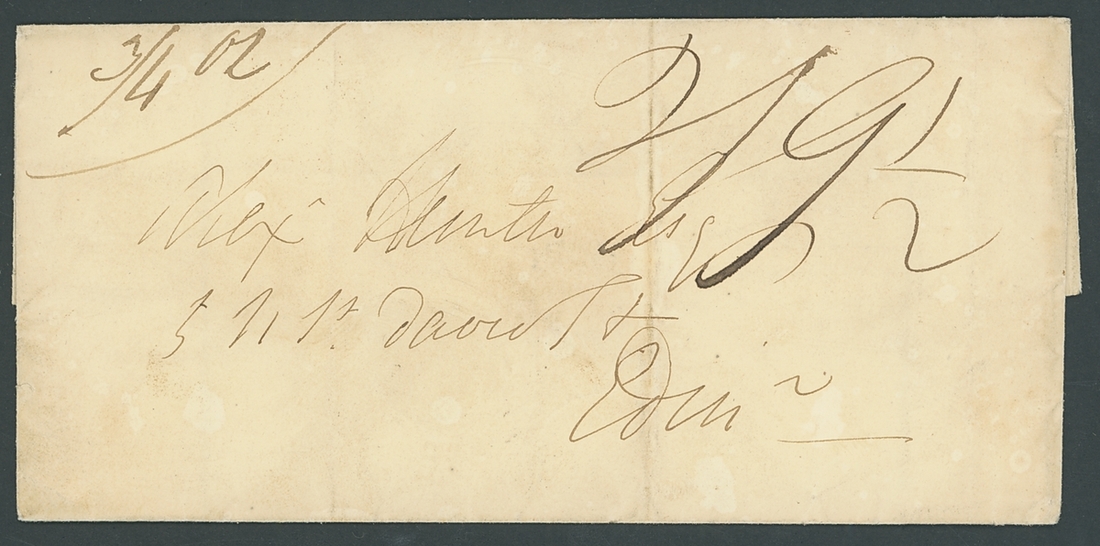 3/4 oz
2/9 1/2
Alexr Hunter Esq
5 N St. David St
Edinr